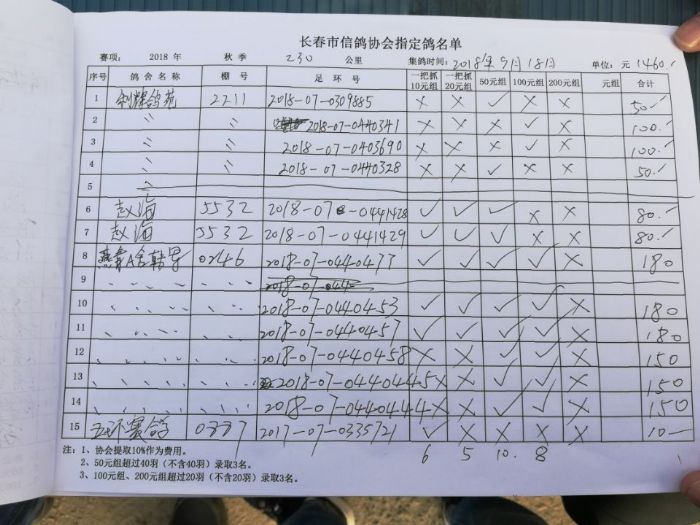 长春市信鸽协会指定鸽名单
赛项： 2018 年 秋 季 230 公里 集鸽时间：2018年9月18日 单位：元 1460.-
序号 鸽舍名称 棚号 足环号 一把抓10元组 一把抓20元组 50元组 100元组 200元组 元组 合计
1 2211 2018-07-0309885 × × ✓ × × 50.-
2 〃 〃 2018-07-0440341 × × × ✓ × 100.-
3 〃 〃 2018-07-0403690 × × × ✓ × 100.-
4 〃 〃 2018-07-0440328 × × ✓ × × 50.-
5 〃
6 赵海 5532 2018-07-0441428 ✓ ✓ ✓ × × 80.-
7 赵海 5532 2018-07-0441429 ✓ ✓ ✓ × × 80.-
8 0246 2018-07-0440477 ✓ ✓ ✓ ✓ × 180
9 2018-07-044
10 2018-07-0440453 ✓ ✓ ✓ ✓ × 180
11 2018-07-0440457 ✓ ✓ ✓ ✓ × 180
12 2018-07-0440458 × × ✓ ✓ × 150
13 2018-07-0440445 × × ✓ ✓ × 150
14 2018-07-0440444 × × ✓ ✓ × 150
15 五环赛鸽 2017-07-0335721 ✓ × × × × 10-
6 5 10. 8
注：1、协会提取10%作为费用。
2、50元组超过40羽（不含40羽）录取3名。
3、100元组、200元组超过20羽（不含20羽）录取3名。